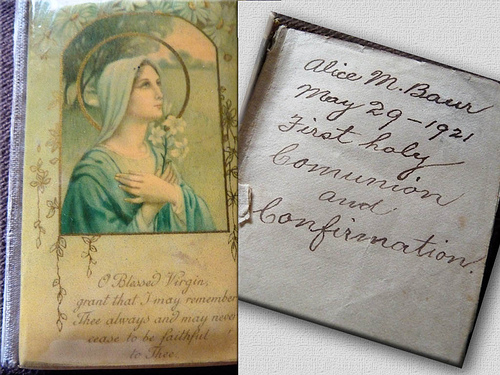 O Blessed Virgin,
grant that I may remember
Thee always and may never
cease to be faithful
to Thee.
Alice M. Baur
May 29-1921
First holy
Comunion
and
Confirmation.